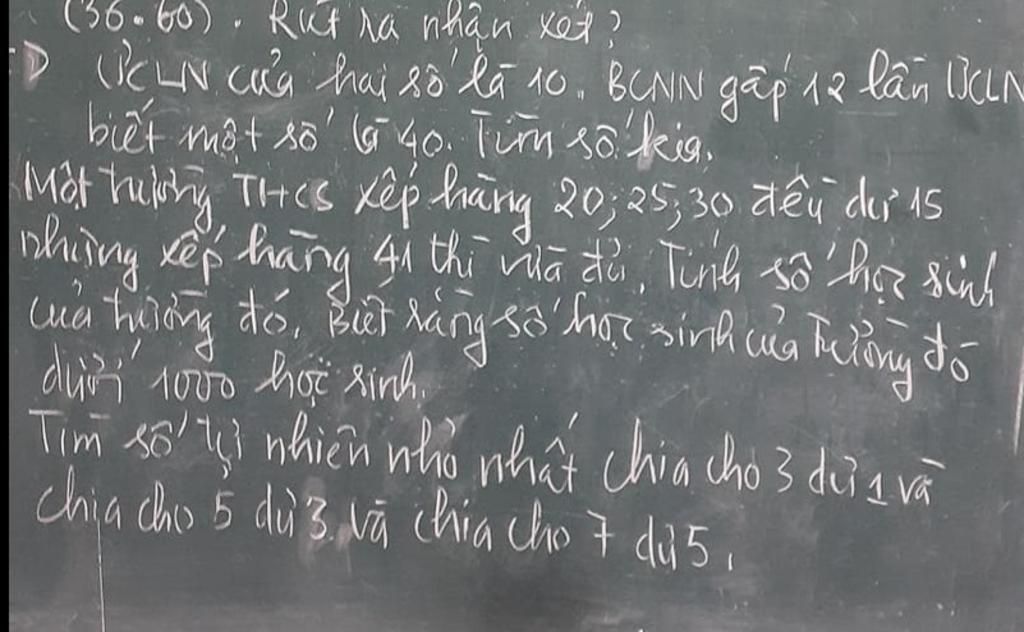 (36.60). Rút ra nhận xét?
ƯCLN của hai số là 10. BCNN gấp 12 lần ƯCLN
biết một số là 40. Tìm số kia.
Một trường THCS xếp hàng 20; 25; 30 đều dư 15
nhưng xếp hàng 41 thì vừa đủ. Tính số học sinh
của trường đó. Biết rằng số học sinh của trường đó
dưới 1000 học sinh.
Tìm số tự nhiên nhỏ nhất chia cho 3 dư 1 và
chia cho 5 dư 3 và chia cho 7 dư 5.